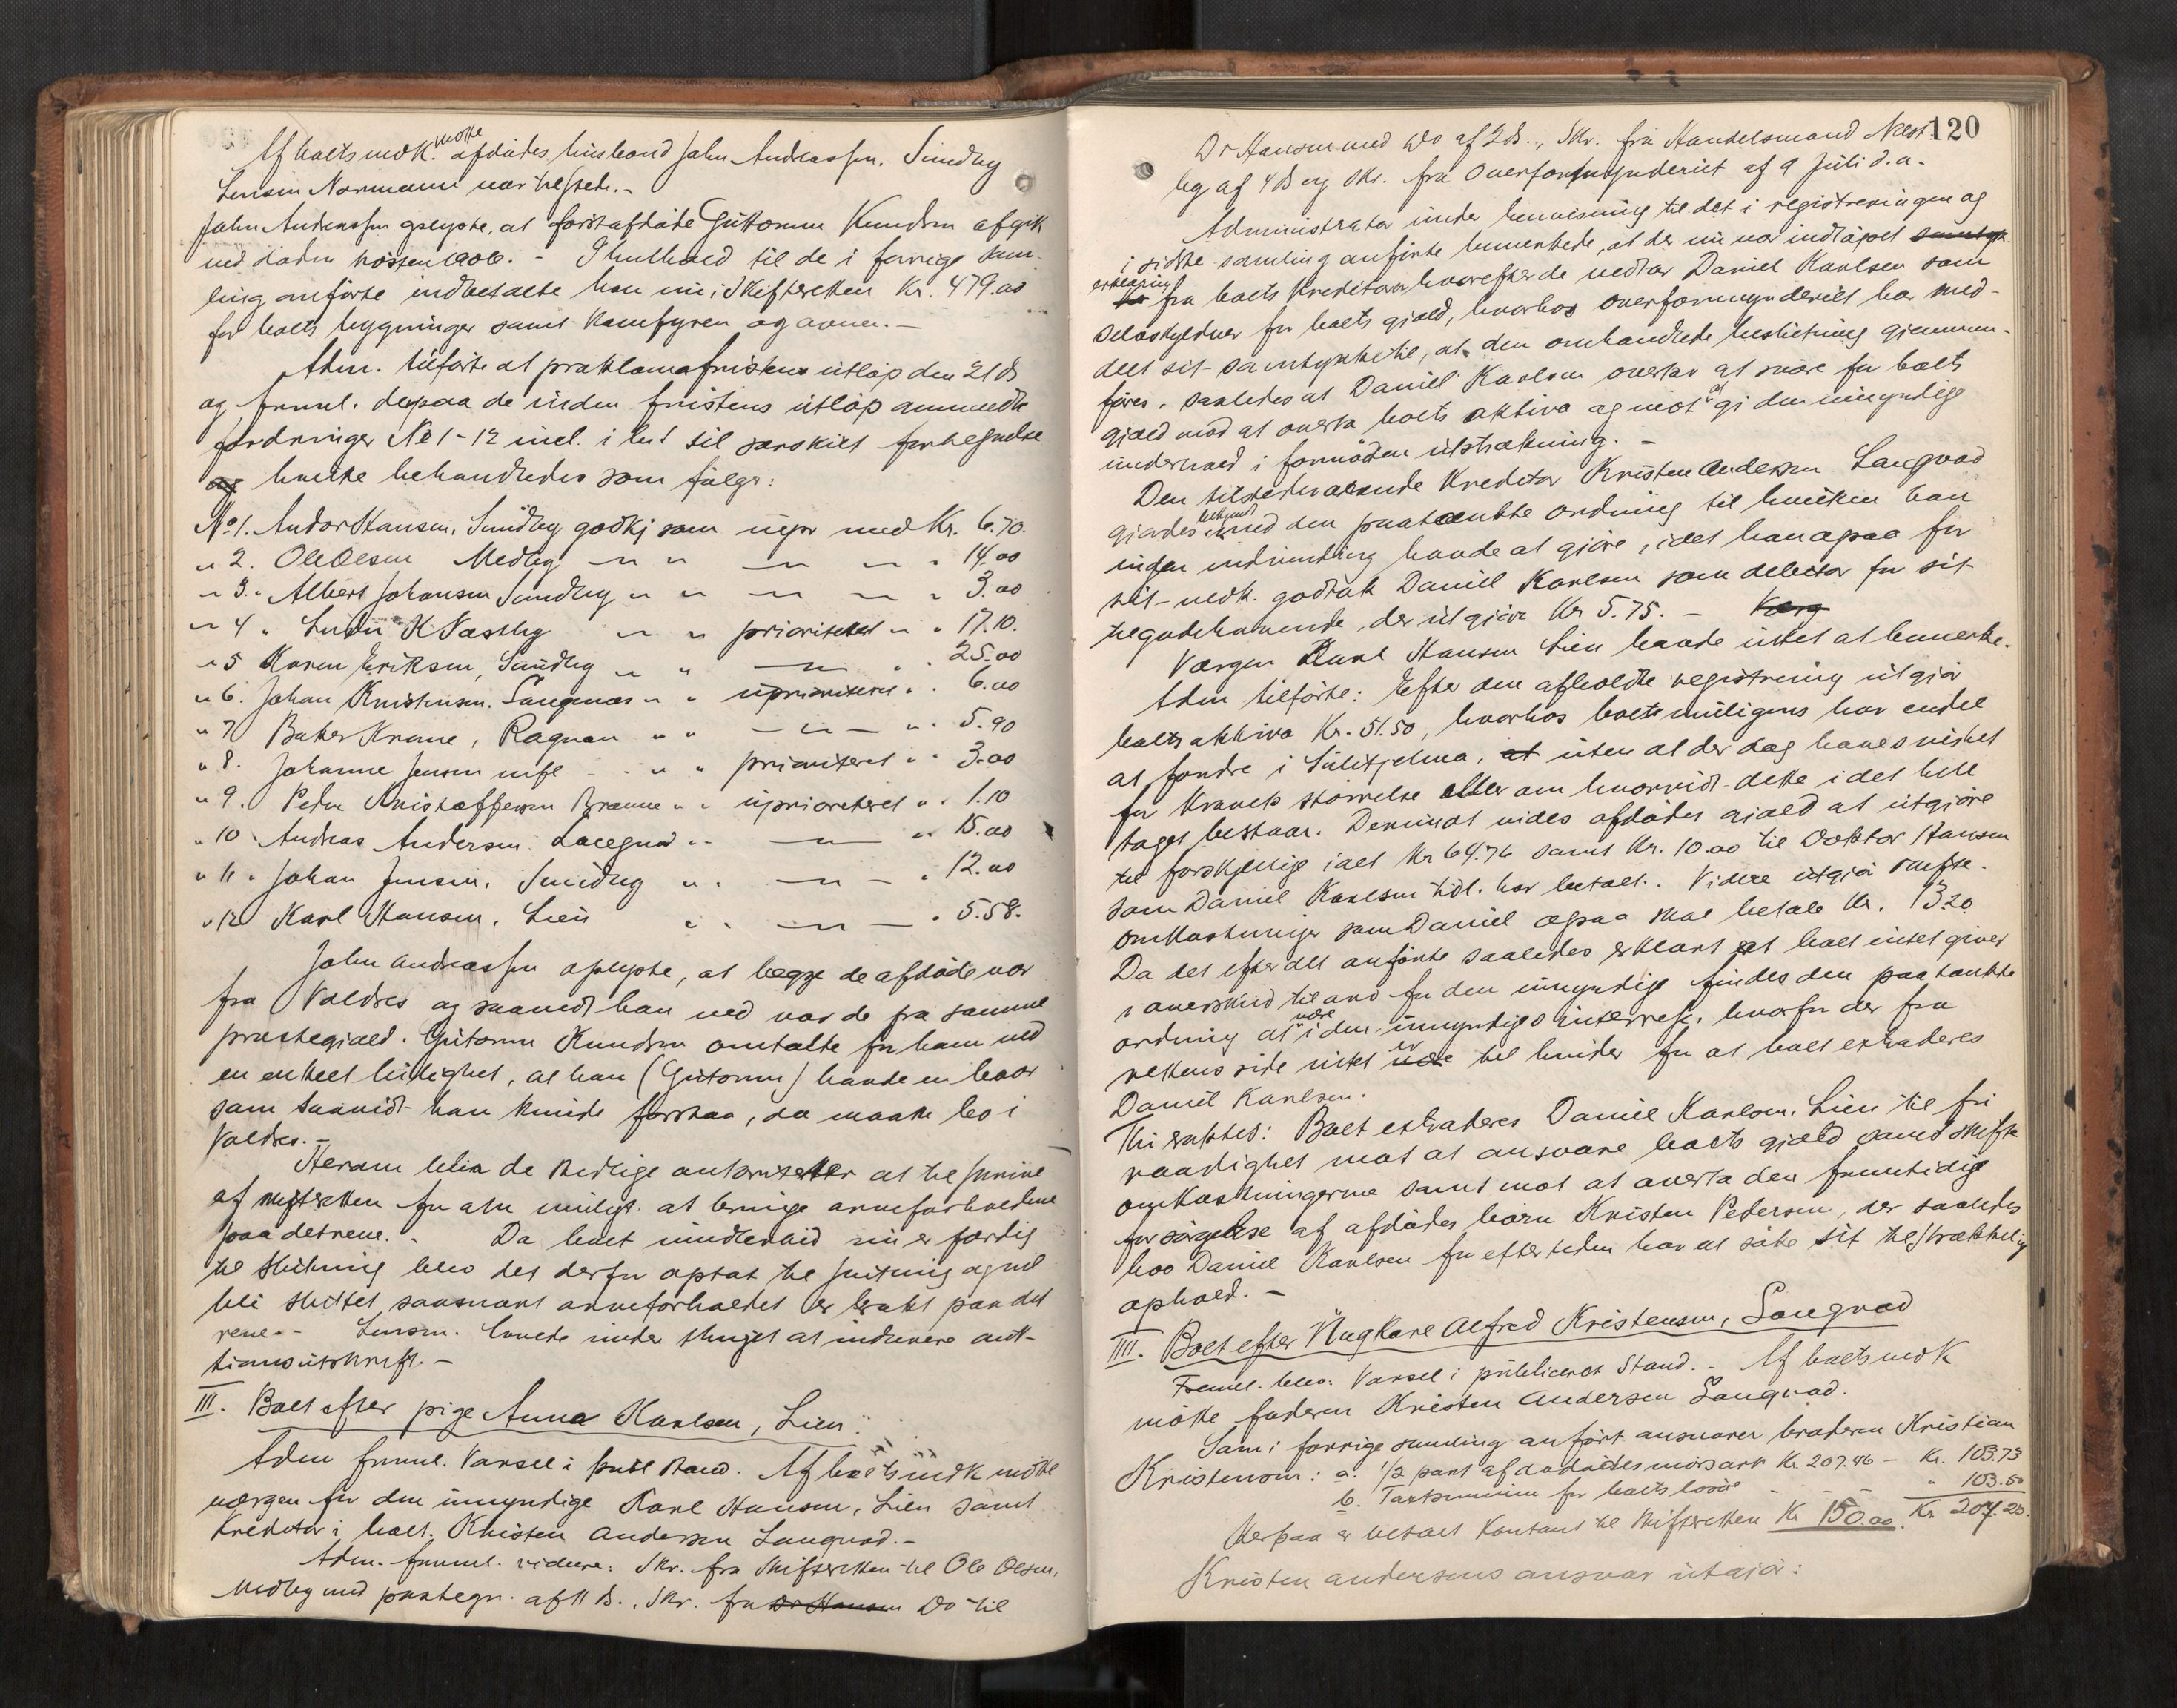 Af boets vedk. møtte afdødes husbond John Andreassen. Sundby
Lensm Normann var tilstede.-
John Andreassen oplyste, at førstafdøde Guttorm Knudsen afgik
ved døden høsten 1906. - I henhold til de i forrige sam-
ling anførte indbetalte han nu i Skifteretten Kr. 479.00
for boets bygninger samt komfyren og ovnen.-
Adm. tilførte at proklamafristens utløp den 21 ds
og freml. derpaa de inden fristens utløp anmeldte
fordringer No 1-12 incl. i til særskilt forhefnelse
og hvilke behandledes som følger:
No 1. Andor Hansen, Sundby godkj som uepr med Kr. 6.70.
" 2. Ole Olsen Medby " " " " " 14.00
" 3. Albert Johansen Sundby " " " " " 3.00
" 4. K Næstby " " prioriteret " " 17.10.
" 5 Karen Eriksen, Sundby " " " " 25.00
" 6. Johan Kristensen. Langnæs " " uprioriteret " . 6.00
" 7 Baker Krane, Rognan " " " " . 5.90
" 8. Johanne Jensen " " prioriteret " " 3.00
" 9. Peder Kristoffersen Brænne " " uprioriteret " . 1.10
" 10. Andreas Andersen. " " " 15.00
" 11. Johan Jensen, Sundby " . " " 12.00
" 12 Karl Hansen. Lien " . " " 5.58.
John Andreassen oplyste, at begge de afdøde var
fra Valdres og saavidt han ved var de fra samme
præstegjæld. Gutorm Knudsen omtalte for ham ved
en enkelt leilighet, at han (Gutorm) havde en bror
som saavidt han kunde forstaa, da maatte bo i
Valdres.-
Herom blir de stedlige autoriteter at tilskrive
af skifteretten for om muligt at bringe arveforholdene
paa det rene.- Da boet imidlertid nu er færdig
til slutning blev det derfor optat til slutning og vil
bli sluttet, saasnart arveforholdet er bragt paa det
rene.- Lensm. lovede under skriget at indlevere auk-
tionsutskrift.-
III. Boet efter pige Anna Karlsen, Lien:
Adm freml. Varsel i publ stand. Af boets vedk møtte
værgen for den umyndige Karl Hansen, Lien samt
Kreditor i boet. Kristen Andersen Langvad.-
Adm. freml. videre: Skr. fra Skifteretten til Ole Olsen,
Medby med paategn. af 11 ds., Skr. fra Dr Hansen Do til
120
Dr Hansen med Do af 2 ds., Skr. fra Handelsmand Næst-
by af 4 ds og Skr. fra Overformynderiet af 9 Juli d.a.
Administrator under henvisning til det i registreringen og
i sidste samling anførte bemerkede, at der nu var indløpet samtyk
erklæring fra boets kreditorer hvorefter de vedtar Daniel Karlsen som
selvskyldner for boets gjæld, hvorhos overformynderiet har med-
delt sit samtykke til, at den omhandlede beslutning gjennem-
føres, saaledes at Daniel Karlsen overtar at svare for boets
gjæld mod at overta boets aktiva og mot at gi den umyndige
underhold i fornøden utstrækning.-
Den tilstedeværende Kreditor Kristen Andersen Langvad
gjordes bekjendt med den paatænkte ordning til hvilken han
ingen indvending havde at gjøre, idet han ogsaa for
sit vedk. godtok Daniel Karlsen som debitor for sit
tilgodehavende, der utgjør Kr 5.75.- Værg
Værgen Karl Hansen Lien havde intet at bemerke.
Adm tilførte: Efter den afholdte registrering utgjør
boets aktiva Kr. 51.50, hvorhos boet muligens har endel
at fordre i Sulitjelma, at uten at der dog haves vished
for kravets størrelse eller om hvorvidt dette i det hele
taget bestaar. Derimot vides afdødes gjæld at utgjøre
til forskjellige ialt Kr 64.76 samt Kr. 10.00 til Doktor Hansen
som Daniel Karlsen tidl. har betalt. Videre utgjør skifte-
omkostninger som Daniel ogsaa skal betale Kr. 13.20
Da det efter det anførte saaledes er klart at boet intet giver
i overskud til arv for den umyndige findes den paatænkte
ordning at være i den umyndiges interesse, hvorfor der fra
rettens side intet er til hinder for at boet extraderes
Daniel Karlsen.
Thi eragtes: Boet extraderes Daniel Karlsen, Lien til fri
raadighet mot at ansvare boets gjæld samt skifte
omkostningerne samt mot at overta den fremtidige
forsørgelse af afdødes barn Kristen Pedersen, der saaledes
hos Daniel Karlsen for eftertiden har at søke sit tilstrækkelig
ophold.-
IIII. Boet efter Ungkare Alfred Kristensen, Langvad
Freml. blev: Varsel i publiceret Stand.- Af boets vedk
møtte faderen Kristen Andersen Langvad.
Som i forrige samling anført ansvarer broderen Kristian
Kristensen: a. 1/2 part af afdødes morsarv Kr. 207.46 - Kr. 103.73
b. Takstsummen for boets løsøre - - - " 103.50
Kr. 207.23.
Herpaa er betalt kontant til skifteretten Kr 150.00.
Kristen Andersens ansvar utgjør: